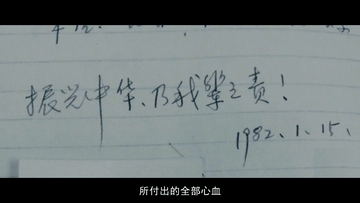 振兴中华、乃我辈之责!
1982.1.15.
所付出的全部心血